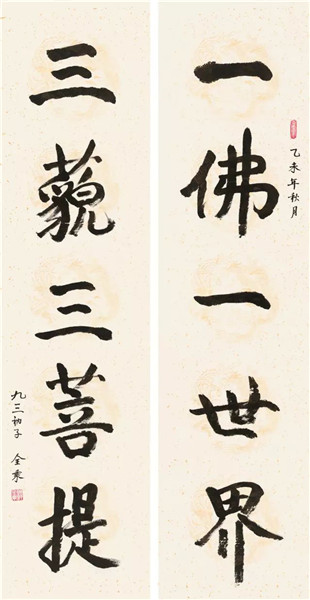 乙未年秋月
一佛一世界
三藐三菩提
九三初子 全乘